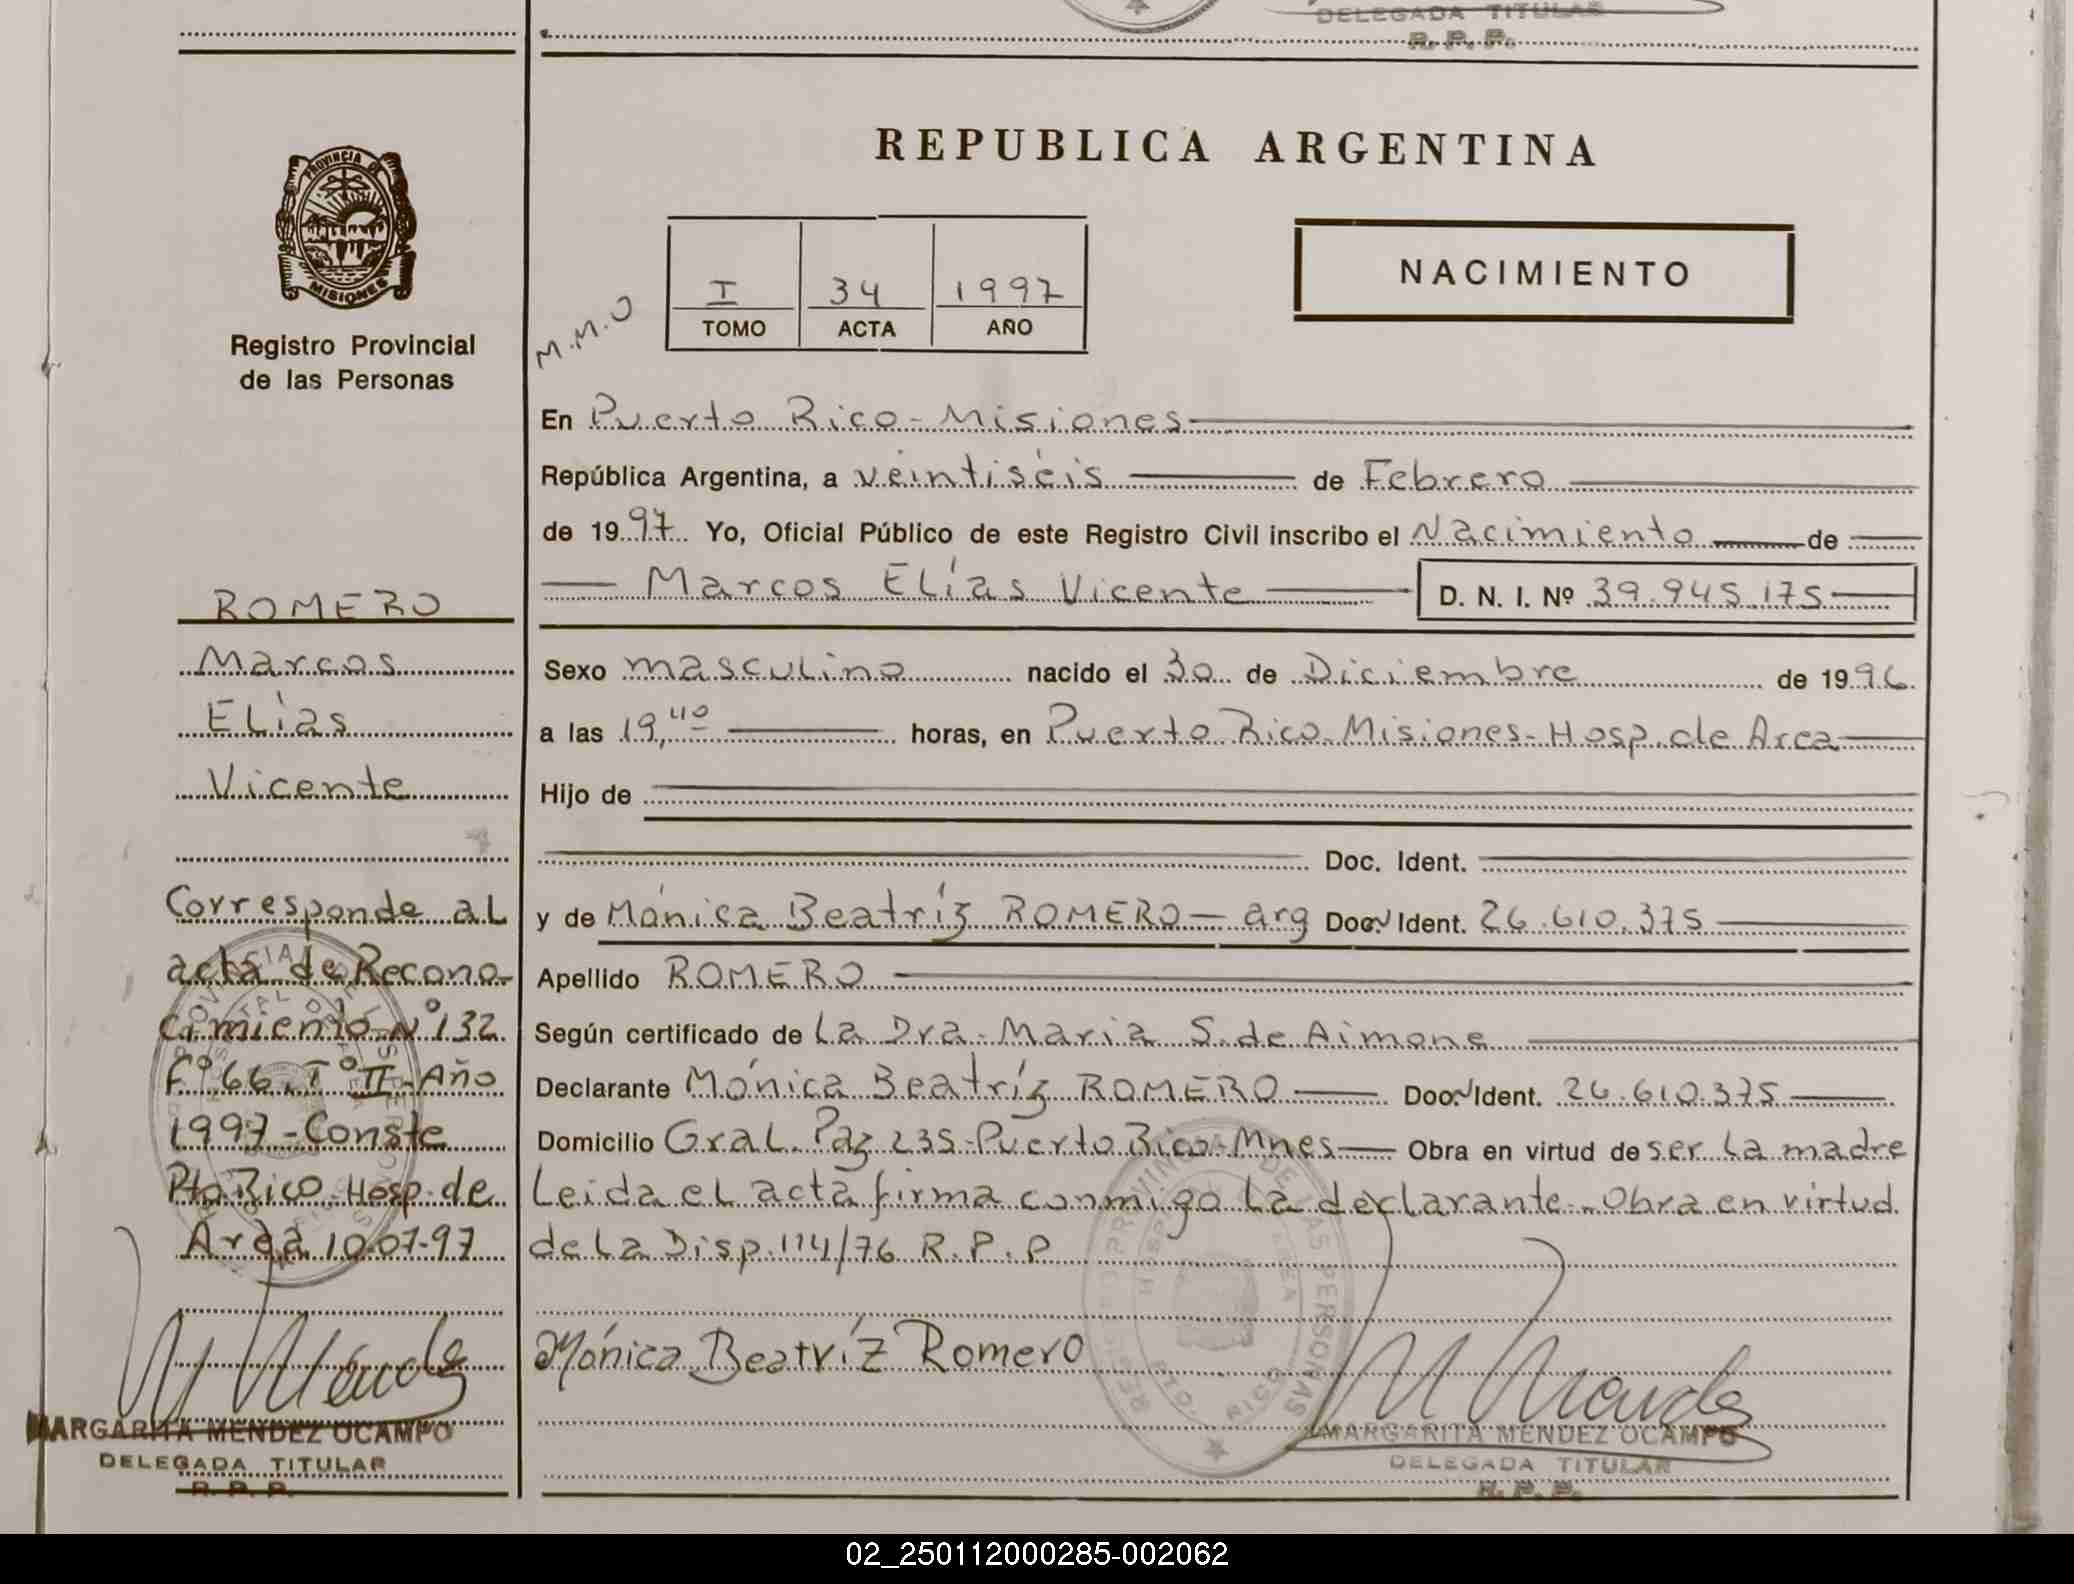 DELEGADA TITULAR
R. P. P.
PROVINCIA DE
MISIONES
Registro Provincial
de las Personas
ROMERO
Marcos
Elías
Vicente
Corresponde al
acta de Recono-
cimiento Nº 132
Fº 66. Tº II - Año
1997 - Conste
Pto Rico - Hosp. de
Area 10-07-97
MARGARITA MENDEZ OCAMPO
DELEGADA TITULAR
R. P. P.
REPUBLICA ARGENTINA
M.M.O
I 34 1997
TOMO ACTA AÑO
NACIMIENTO
En Puerto Rico - Misiones
República Argentina, a veintiséis de Febrero
de 1997 Yo, Oficial Público de este Registro Civil inscribo el Nacimiento de
Marcos Elías Vicente D. N. I. Nº 39.945.175
Sexo masculino nacido el 30 de Diciembre de 1996
a las 19,40 horas, en Puerto Rico - Misiones - Hosp. de Area
Hijo de
Doc. Ident.
y de Mónica Beatríz ROMERO - arg Doc. Ident. 26.610.375
Apellido ROMERO
Según certificado de La Dra. Maria S. de Aimone
Declarante Mónica Beatríz ROMERO Doc. Ident. 26.610.375
Domicilio Gral. Paz 235 - Puerto Rico - Mnes Obra en virtud de ser la madre
Leida el acta firma conmigo la declarante - Obra en virtud
de la Disp. 114/76 R.P.P
Mónica Beatríz Romero
MARGARITA MENDEZ OCAMPO
DELEGADA TITULAR
R. P. P.
02_250112000285-002062